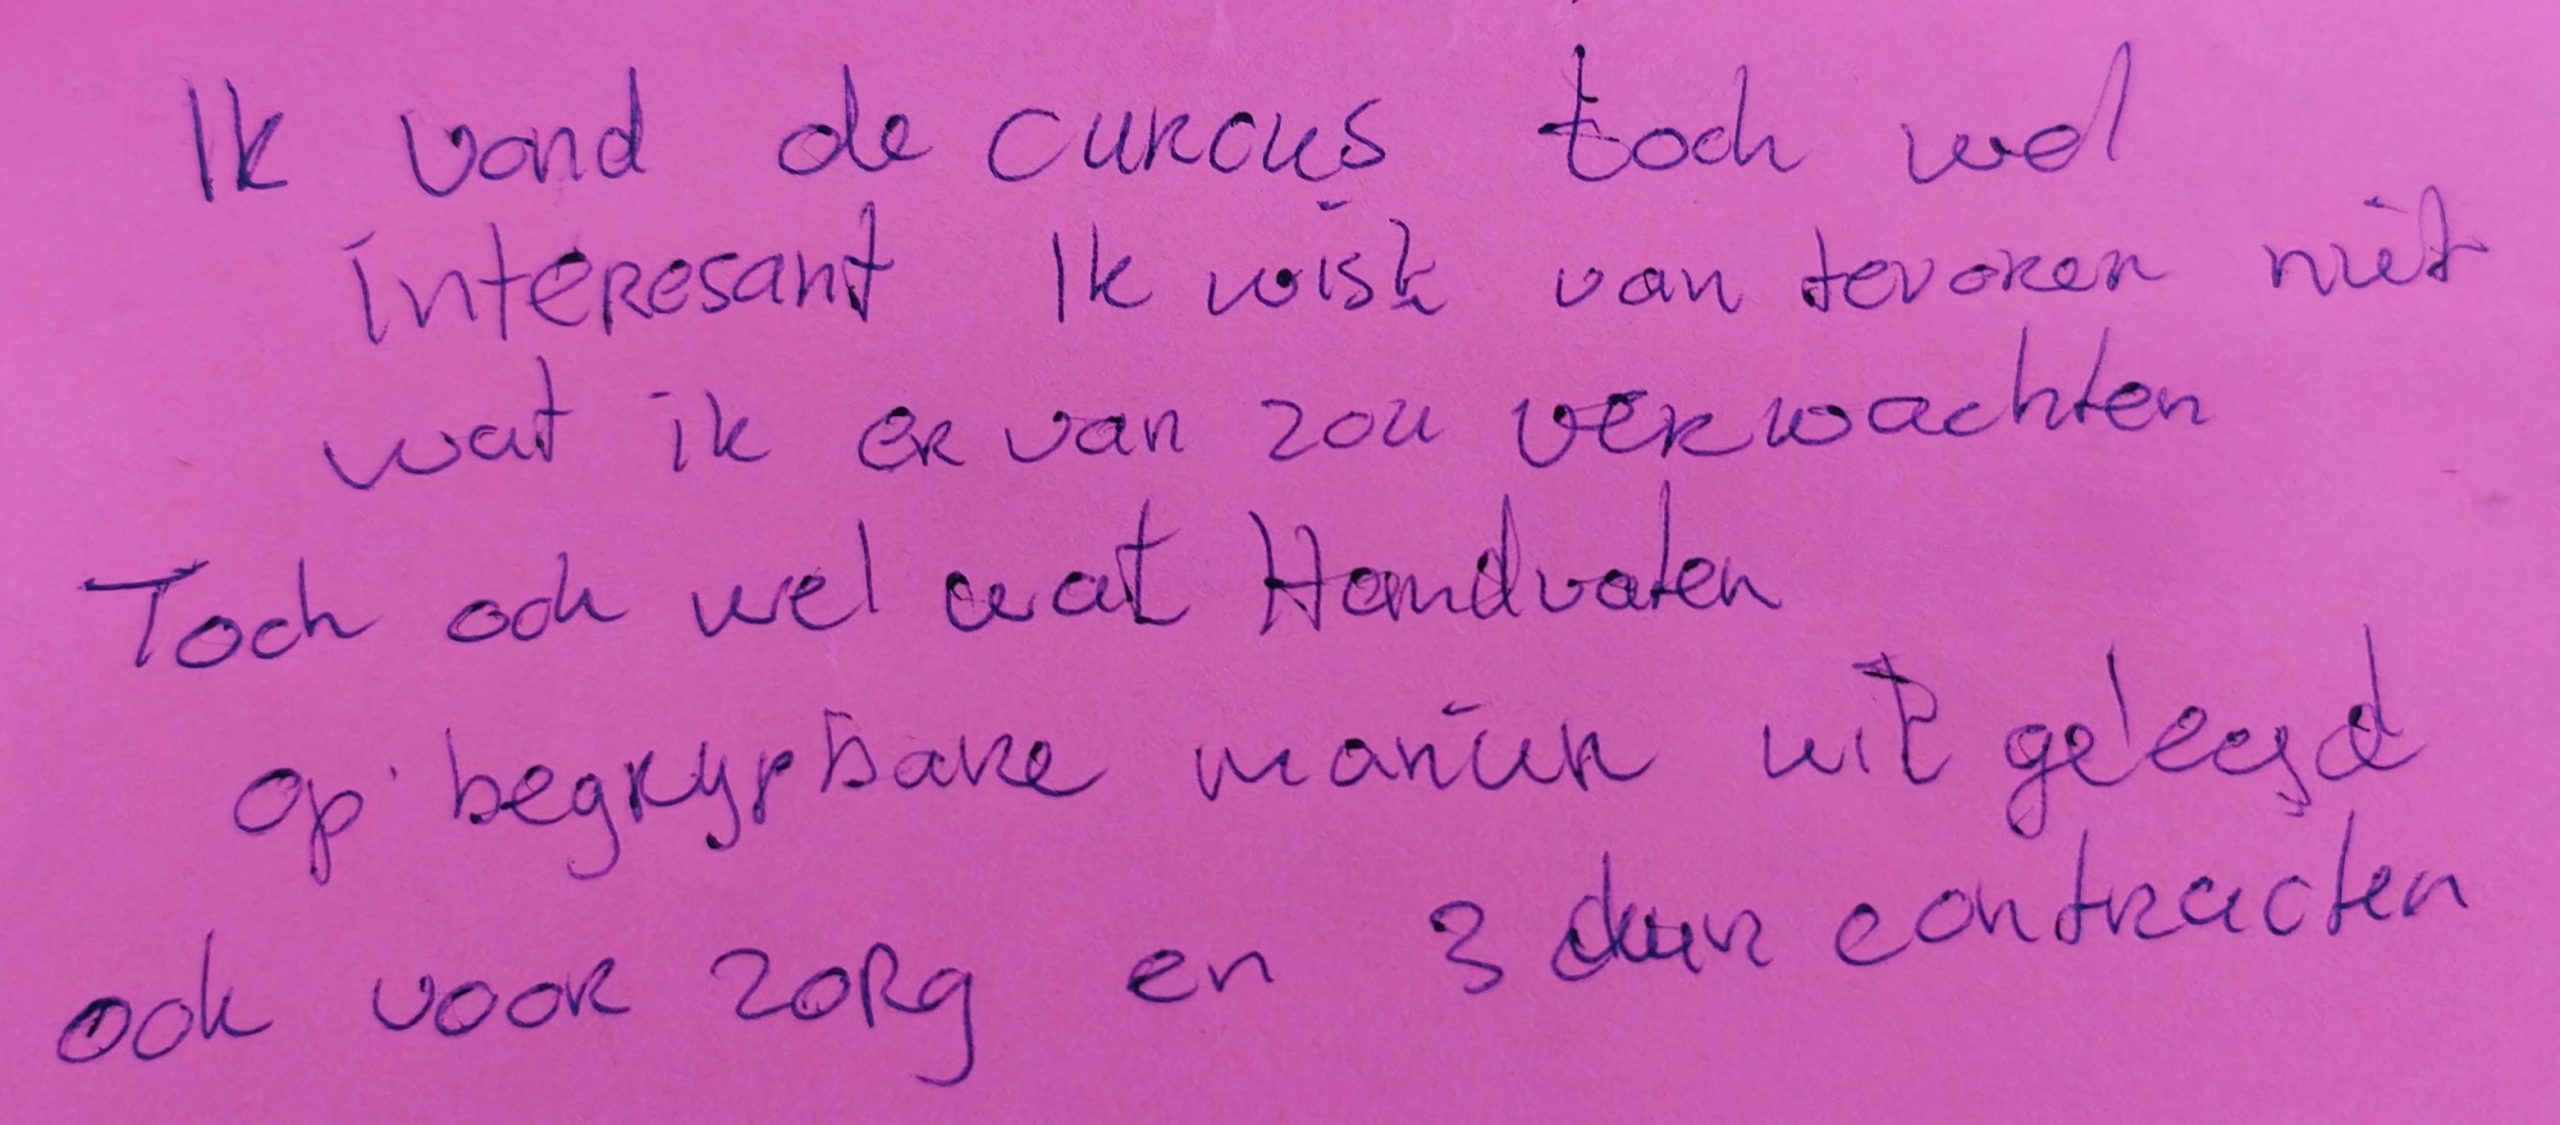 Ik vond de curcus toch wel
interesant Ik wist van tevoren niet
wat ik er van zou verwachten
Toch ook wel wat Handvaten
op begrypbare manier uit geleegd
ook voor zorg en 3 deur contracten